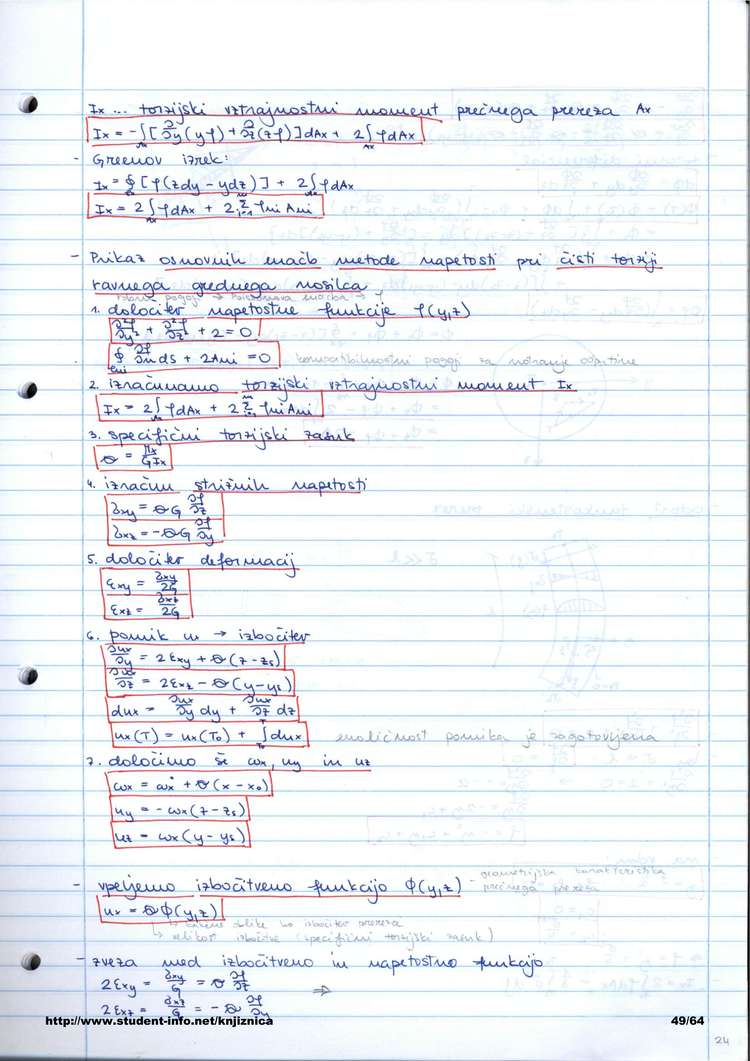 Ix ... torzijski vztrajnostni moment prečnega prereza Ax
Ix = -∫[∂/∂y(yφ) + ∂/∂z(zφ)]dAx + 2∫φdAx
- Greenov izrek:
Ix = ∮[φ(zdy - ydz)] + 2∫φdAx
Ix = 2∫φdAx + 2Σφni Ani
- Prikaz osnovnih enačb metode napetosti pri čisti torziji
ravnega grednega nosilca
robni pogoji → Poissonova enačba → φ
1. določitev napetostne funkcije φ(y,z)
∂²φ/∂y² + ∂²φ/∂z² + 2 = 0
∮ ∂φ/∂n ds + 2Ani = 0 kompatibilnostni pogoji za notranje odprtine
2. izračunamo torzijski vztrajnostni moment Ix
Ix = 2∫φdAx + 2Σφni Ani
3. specifični torzijski zasuk
Θ = Mx/GIx
4. izračun strižnih napetosti
σxy = ΘG ∂φ/∂z
σxz = -ΘG ∂φ/∂y
5. določitev deformacij
εxy = σxy/2G
εxz = σxz/2G
6. pomik ux → izbočitev
∂ux/∂y = 2εxy + Θ(z-zs)
∂ux/∂z = 2εxz - Θ(y-ys)
dux = ∂ux/∂y dy + ∂ux/∂z dz
ux(T) = ux(T0) + ∫dux enoličnost pomika je zagotovljena
7. določimo še ωx, uy in uz
ωx = ωx* + Θ(x-x0)
uy = -ωx(z-zs)
uz = ωx(y-ys)
- vpeljemo izbočitveno funkcijo Φ(y,z) - geometrijska karakteristika
prečnega prereza
ux = ΘΦ(y,z)
↳ velikost izbočitve (specifični torzijski zasuk)
- zveza med izbočitveno in napetostno funkcijo
2εxy = σxy/G = Θ ∂φ/∂z ⇒
2εxz = σxz/G = -Θ ∂φ/∂y
http://www.student-info.net/knjiznica 49/64
24